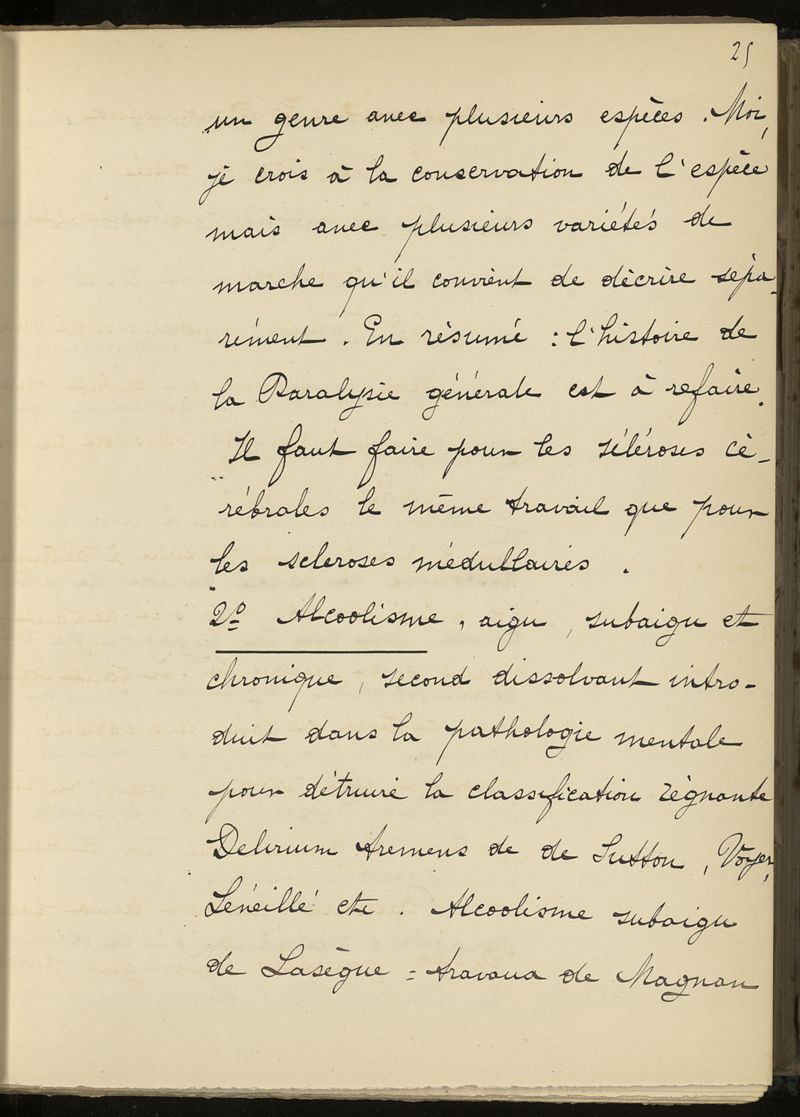 25
un genre avec plusieurs espèces. Moi,
je crois à la conservation de l'espèce
mais avec plusieurs variétés de
marche qu'il convient de décrire sépa-
rément. En résumé : l'histoire de
la Paralysie générale est à refaire.
Il faut faire pour les scléroses cé-
rébrales le même travail que pour
les scleroses médullaires.
2º Alcoolisme, aigu, subaigu et
chronique, second dissolvant intro-
duit dans la pathologie mentale
pour détruire la classification régnante
Delirium tremens de de Sutton, Voyer,
Léveillé etc. Alcoolisme subaigu
de Lasègue = travaux de Magnan